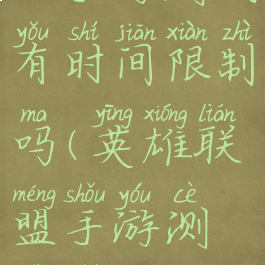 yǒu shí jiān xiàn zhì
有时间限制
ma yīng xióng lián
吗(英雄联
méng shǒu yóu cè
盟手游测